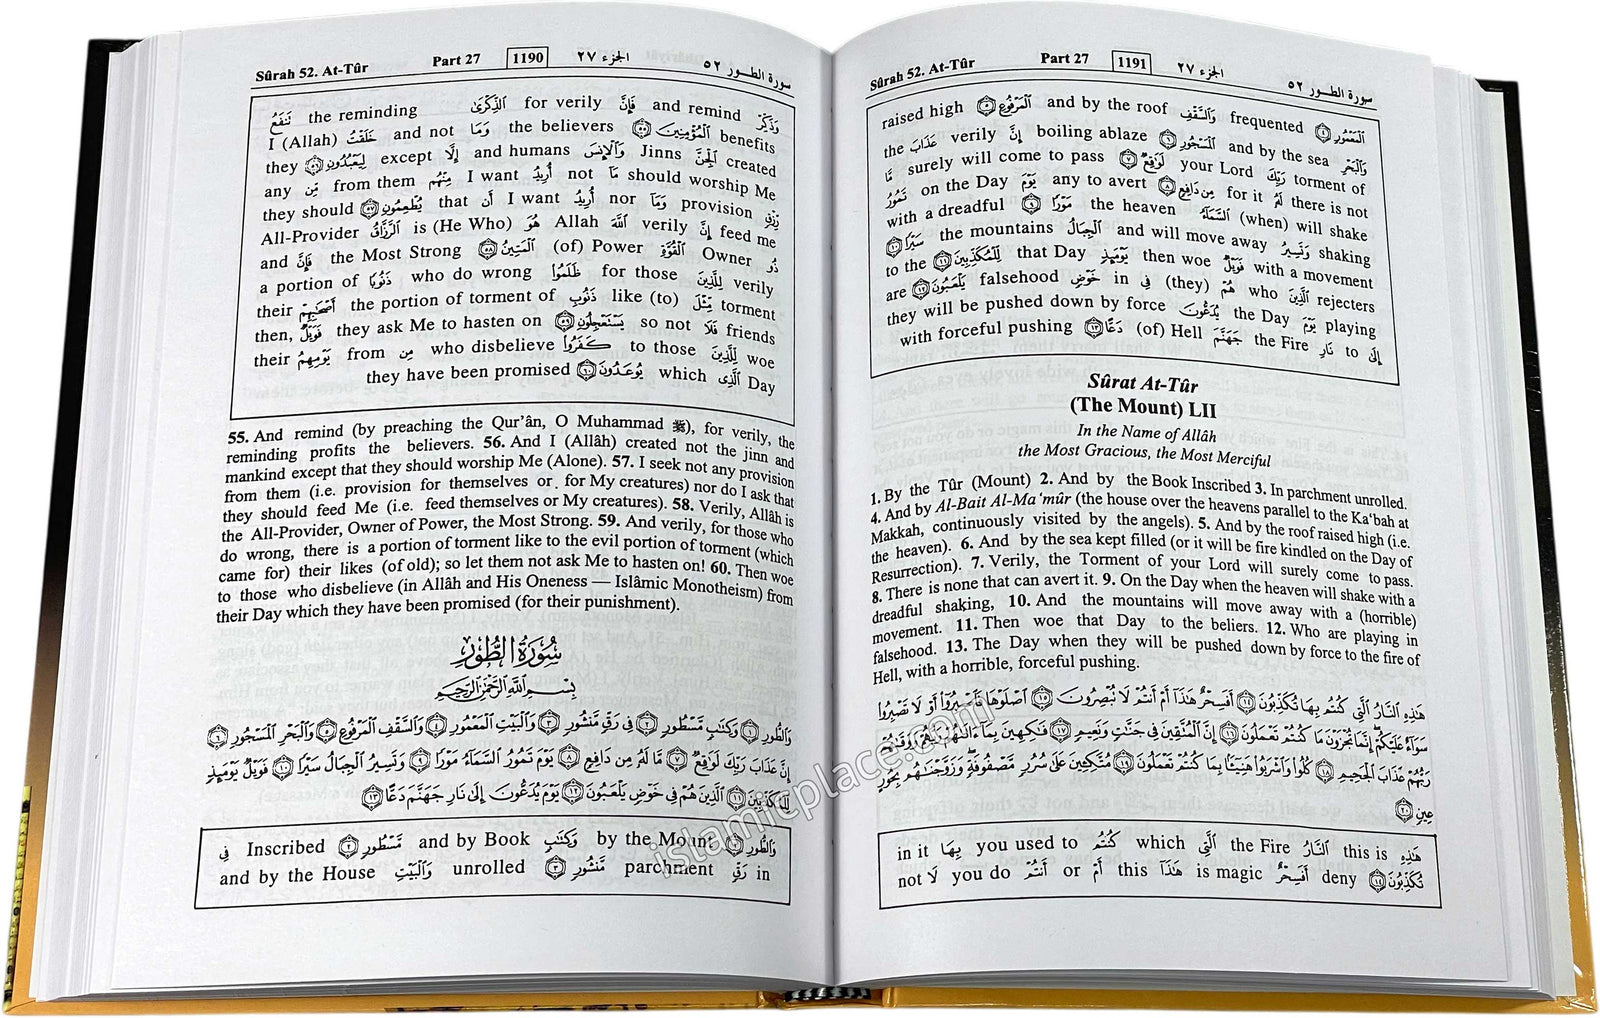 Sûrah 52. At-Tûr Part 27 1190 الجزء ٢٧ سورة الطور ٥٢
وَذَكِّرْ and remind فَإِنَّ for verily ٱلذِّكْرَىٰ the reminding تَنفَعُ
benefits ٱلْمُؤْمِنِينَ ٥٥ the believers وَمَا and not خَلَقْتُ I (Allah)
created ٱلْجِنَّ Jinns وَٱلْإِنسَ and humans إِلَّا except لِيَعْبُدُونِ ٥٦ they
should worship Me مَآ not أُرِيدُ I want مِنْهُم from them مِّن any
رِّزْقٍ provision وَمَآ nor أُرِيدُ I want أَن that يُطْعِمُونِ ٥٧ they should
feed me إِنَّ verily ٱللَّهَ Allah هُوَ is (He Who) ٱلرَّزَّاقُ All-Provider
ذُو Owner ٱلْقُوَّةِ (of) Power ٱلْمَتِينُ ٥٨ the Most Strong فَإِنَّ and
verily لِلَّذِينَ for those ظَلَمُوا۟ who do wrong ذَنُوبًا a portion of
torment مِّثْلَ like (to) ذَنُوبِ the portion of torment of أَصْحَٰبِهِمْ their
friends فَلَا so not يَسْتَعْجِلُونِ ٥٩ they ask Me to hasten on فَوَيْلٌ then,
woe لِّلَّذِينَ to those كَفَرُوا۟ who disbelieve مِن from يَوْمِهِمُ their
Day ٱلَّذِى which يُوعَدُونَ ٦٠ they have been promised
55. And remind (by preaching the Qur'ân, O Muhammad ﷺ), for verily, the
reminding profits the believers. 56. And I (Allâh) created not the jinn and
mankind except that they should worship Me (Alone). 57. I seek not any provision
from them (i.e. provision for themselves or for My creatures) nor do I ask that
they should feed Me (i.e. feed themselves or My creatures). 58. Verily, Allâh is
the All-Provider, Owner of Power, the Most Strong. 59. And verily, for those who
do wrong, there is a portion of torment like to the evil portion of torment (which
came for) their likes (of old); so let them not ask Me to hasten on! 60. Then woe
to those who disbelieve (in Allâh and His Oneness — Islâmic Monotheism) from
their Day which they have been promised (for their punishment).
سُورَةُ الطُّورِ
بِسْمِ ٱللَّهِ ٱلرَّحْمَٰنِ ٱلرَّحِيمِ
وَٱلطُّورِ ١ وَكِتَٰبٍ مَّسْطُورٍ ٢ فِى رَقٍّ مَّنشُورٍ ٣ وَٱلْبَيْتِ ٱلْمَعْمُورِ ٤ وَٱلسَّقْفِ ٱلْمَرْفُوعِ ٥ وَٱلْبَحْرِ ٱلْمَسْجُورِ ٦
إِنَّ عَذَابَ رَبِّكَ لَوَٰقِعٌ ٧ مَّا لَهُۥ مِن دَافِعٍ ٨ يَوْمَ تَمُورُ ٱلسَّمَآءُ مَوْرًا ٩ وَتَسِيرُ ٱلْجِبَالُ سَيْرًا ١٠ فَوَيْلٌ يَوْمَئِذٍ
لِّلْمُكَذِّبِينَ ١١ ٱلَّذِينَ هُمْ فِى خَوْضٍ يَلْعَبُونَ ١٢ يَوْمَ يُدَعُّونَ إِلَىٰ نَارِ جَهَنَّمَ دَعًّا ١٣
وَٱلطُّورِ ١ by the Mount وَكِتَٰبٍ and by Book مَّسْطُورٍ ٢ Inscribed فِى
in رَقٍّ parchment مَّنشُورٍ ٣ unrolled وَٱلْبَيْتِ and by the House
Sûrah 52. At-Tûr Part 27 1191 الجزء ٢٧ سورة الطور ٥٢
ٱلْمَعْمُورِ ٤ frequented وَٱلسَّقْفِ and by the roof ٱلْمَرْفُوعِ ٥ raised high
وَٱلْبَحْرِ and by the sea ٱلْمَسْجُورِ ٦ boiling ablaze إِنَّ verily عَذَابَ the
torment of رَبِّكَ your Lord لَوَٰقِعٌ ٧ surely will come to pass مَّا
there is not لَهُۥ for it مِن دَافِعٍ ٨ any to avert يَوْمَ on the Day تَمُورُ
(when) will shake ٱلسَّمَآءُ the heaven مَوْرًا ٩ with a dreadful
shaking وَتَسِيرُ and will move away ٱلْجِبَالُ the mountains سَيْرًا ١٠
with a movement فَوَيْلٌ then woe يَوْمَئِذٍ that Day لِّلْمُكَذِّبِينَ ١١ to the
rejecters ٱلَّذِينَ who هُمْ (they) فِى in خَوْضٍ falsehood يَلْعَبُونَ ١٢ are
playing يَوْمَ the Day يُدَعُّونَ they will be pushed down by force
إِلَىٰ to نَارِ the Fire جَهَنَّمَ (of) Hell دَعًّا ١٣ with forceful pushing
Sûrat At-Tûr
(The Mount) LII
In the Name of Allâh
the Most Gracious, the Most Merciful
1. By the Tûr (Mount) 2. And by the Book Inscribed 3. In parchment unrolled.
4. And by Al-Bait Al-Ma'mûr (the house over the heavens parallel to the Ka'bah at
Makkah, continuously visited by the angels). 5. And by the roof raised high (i.e.
the heaven). 6. And by the sea kept filled (or it will be fire kindled on the Day of
Resurrection). 7. Verily, the Torment of your Lord will surely come to pass.
8. There is none that can avert it. 9. On the Day when the heaven will shake with a
dreadful shaking, 10. And the mountains will move away with a (horrible)
movement. 11. Then woe that Day to the beliers. 12. Who are playing in
falsehood. 13. The Day when they will be pushed down by force to the fire of
Hell, with a horrible, forceful pushing.
هَٰذِهِ ٱلنَّارُ ٱلَّتِى كُنتُم بِهَا تُكَذِّبُونَ ١٤ أَفَسِحْرٌ هَٰذَآ أَمْ أَنتُمْ لَا تُبْصِرُونَ ١٥ ٱصْلَوْهَا فَٱصْبِرُوٓا۟ أَوْ لَا تَصْبِرُوا۟
سَوَآءٌ عَلَيْكُمْ إِنَّمَا تُجْزَوْنَ مَا كُنتُمْ تَعْمَلُونَ ١٦ إِنَّ ٱلْمُتَّقِينَ فِى جَنَّٰتٍ وَنَعِيمٍ ١٧ فَٰكِهِينَ بِمَآ ءَاتَىٰهُمْ رَبُّهُمْ وَوَقَىٰهُمْ
رَبُّهُمْ عَذَابَ ٱلْجَحِيمِ ١٨ كُلُوا۟ وَٱشْرَبُوا۟ هَنِيٓـًٔۢا بِمَا كُنتُمْ تَعْمَلُونَ ١٩ مُتَّكِـِٔينَ عَلَىٰ سُرُرٍ مَّصْفُوفَةٍ وَزَوَّجْنَٰهُم بِحُورٍ
عِينٍ ٢٠
هَٰذِهِ this is ٱلنَّارُ the Fire ٱلَّتِى which كُنتُم you used to بِهَا in it
تُكَذِّبُونَ ١٤ deny أَفَسِحْرٌ is magic هَٰذَآ this أَمْ or أَنتُمْ you do لَا not
islamicplace.com